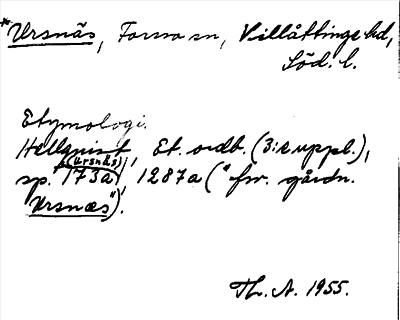 *Ursnäs, Torsva sn, Villåttinge hd,
Söd. l.
Etymologi.
Hellquist, Et. ordb. (3:e uppl.),
(Ursnäs)
sp. 173a, 1287a ("fsv. gårdn.
Ursnæs").
Th. A. 1955.